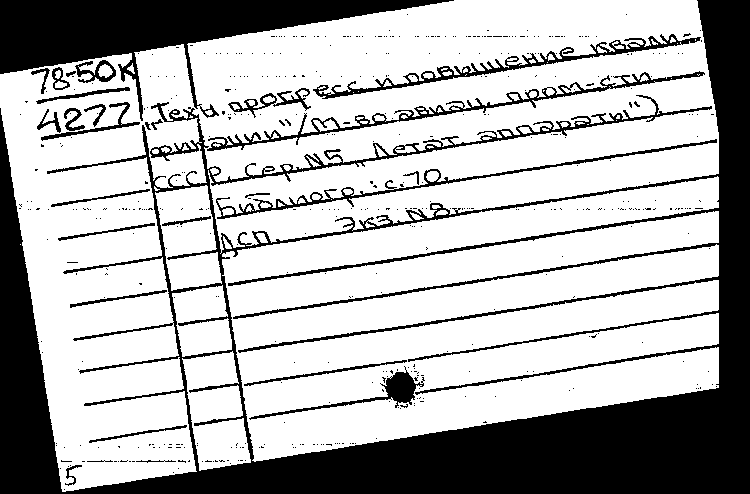 78-50К
4277
„Техн. прогресс и повышение квали-
фикации"/М-во авиац. пром-сти
СССР. Сер. N5 „Летат. аппараты").
Библиогр.: с. 70.
ДСП. Экз. N 8.
5